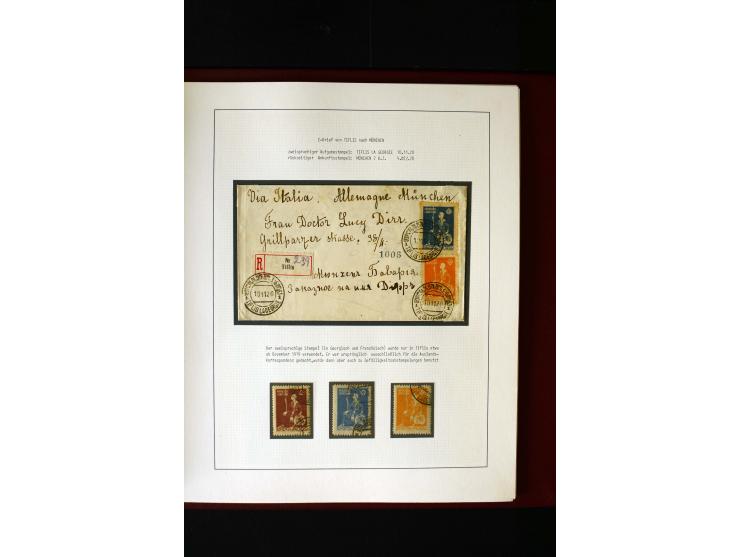 E-Brief von TIFLIS nach MÜNCHEN
zweisprachiger Aufgabestempel: TIFLIS LA GEORGIE 10.11.20
rückseitiger Ankunftsstempel: MÜNCHEN 2 B.Z. 4.DEZ.20
Via Italia. Allemagne München
Frau Doctor Lucy Dirr
Grillparzer strasse, 38/II.
1006
R
№ 239
Tiflis
Мюнхен Бавария
Заказное на имя Дирръ
101120
Der zweisprachige Stempel (in Georgisch und Französisch) wurde nur in Tiflis etwa
ab November 1919 verwendet. Er war ursprünglich ausschließlich für die Auslands-
korrespondenz gedacht, wurde dann aber auch zu Gefälligkeitsabstempelungen benutzt